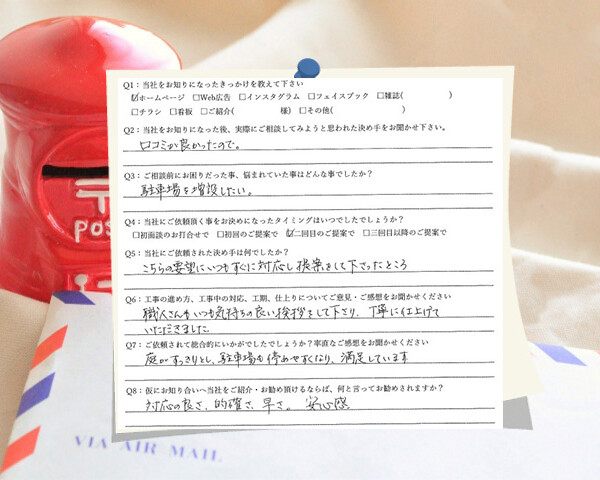 〒
POS
Q1：当社をお知りになったきっかけを教えて下さい
☑ホームページ　□Web広告　□インスタグラム　□フェイスブック　□雑誌(　　　　)
□チラシ　□看板　□ご紹介(　　　　　　様)　□その他(　　　　　　　)
Q2：当社をお知りになった後、実際にご相談してみようと思われた決め手をお聞かせ下さい。
口コミが良かったので。
Q3：ご相談前にお困りだった事、悩まれていた事はどんな事でしたか？
駐車場を増設したい。
Q4：当社にご依頼頂く事をお決めになったタイミングはいつでしたでしょうか？
□初面談のお打合せで　□初回のご提案で　☑二回目のご提案で　□三回目以降のご提案で
Q5：当社にご依頼された決め手は何でしたか？
こちらの要望にいつもすぐに対応し提案をして下さったところ
Q6：工事の進め方、工事中の対応、工期、仕上りについてご意見・ご感想をお聞かせください
職人さんもいつも気持ちの良い挨拶をして下さり、丁寧に仕上げて
いただきました
Q7：ご依頼されて総合的にいかがでしたでしょうか？率直なご感想をお聞かせください
庭がすっきりとし、駐車場も停めやすくなり、満足しています
Q8：仮にお知り合いへ当社をご紹介・お勧め頂けるならば、何と言ってお勧めされますか？
対応の良さ、的確さ、早さ。　安心感
VIA AIR MAIL